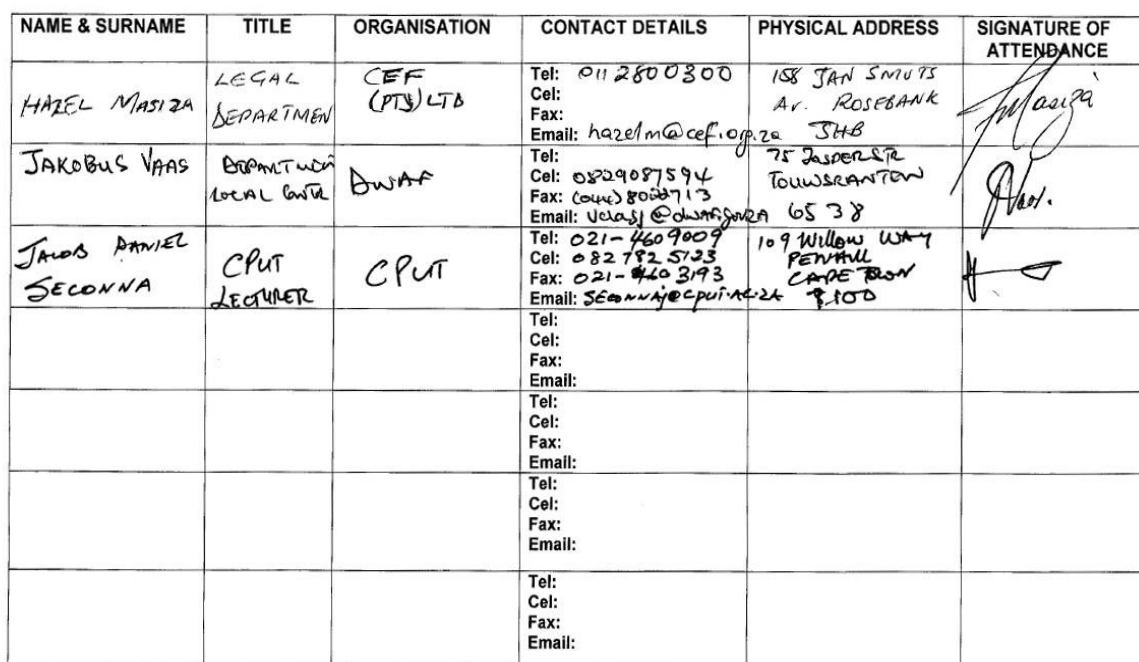 NAME & SURNAME TITLE ORGANISATION CONTACT DETAILS PHYSICAL ADDRESS SIGNATURE OF ATTENDANCE
HAZEL MASIZA
LEGAL
DEPARTMEN
CEF
(PTY) LTD
Tel: 011 2800300
Cel:
Fax:
Email: hazelm@cef.org.za
158 JAN SMUTS
AV. ROSEBANK
JHB
Masiza
JAKOBUS VAAS
LOCAL
DWAF
Tel:
Cel: 0829087594
Fax:
Email:
75 JASPER STR
TOUWSRANTEN
6538
JACOB DANIEL
SECONNA
CPUT
LECTURER
CPUT
Tel: 021-4609009
Cel: 082 782 5123
Fax: 021-460 3193
Email: SECONNAJ@CPUT.AC.ZA
109 Willow WAY
CAPE TOWN
Tel:
Cel:
Fax:
Email:
Tel:
Cel:
Fax:
Email:
Tel:
Cel:
Fax:
Email:
Tel:
Cel:
Fax:
Email: